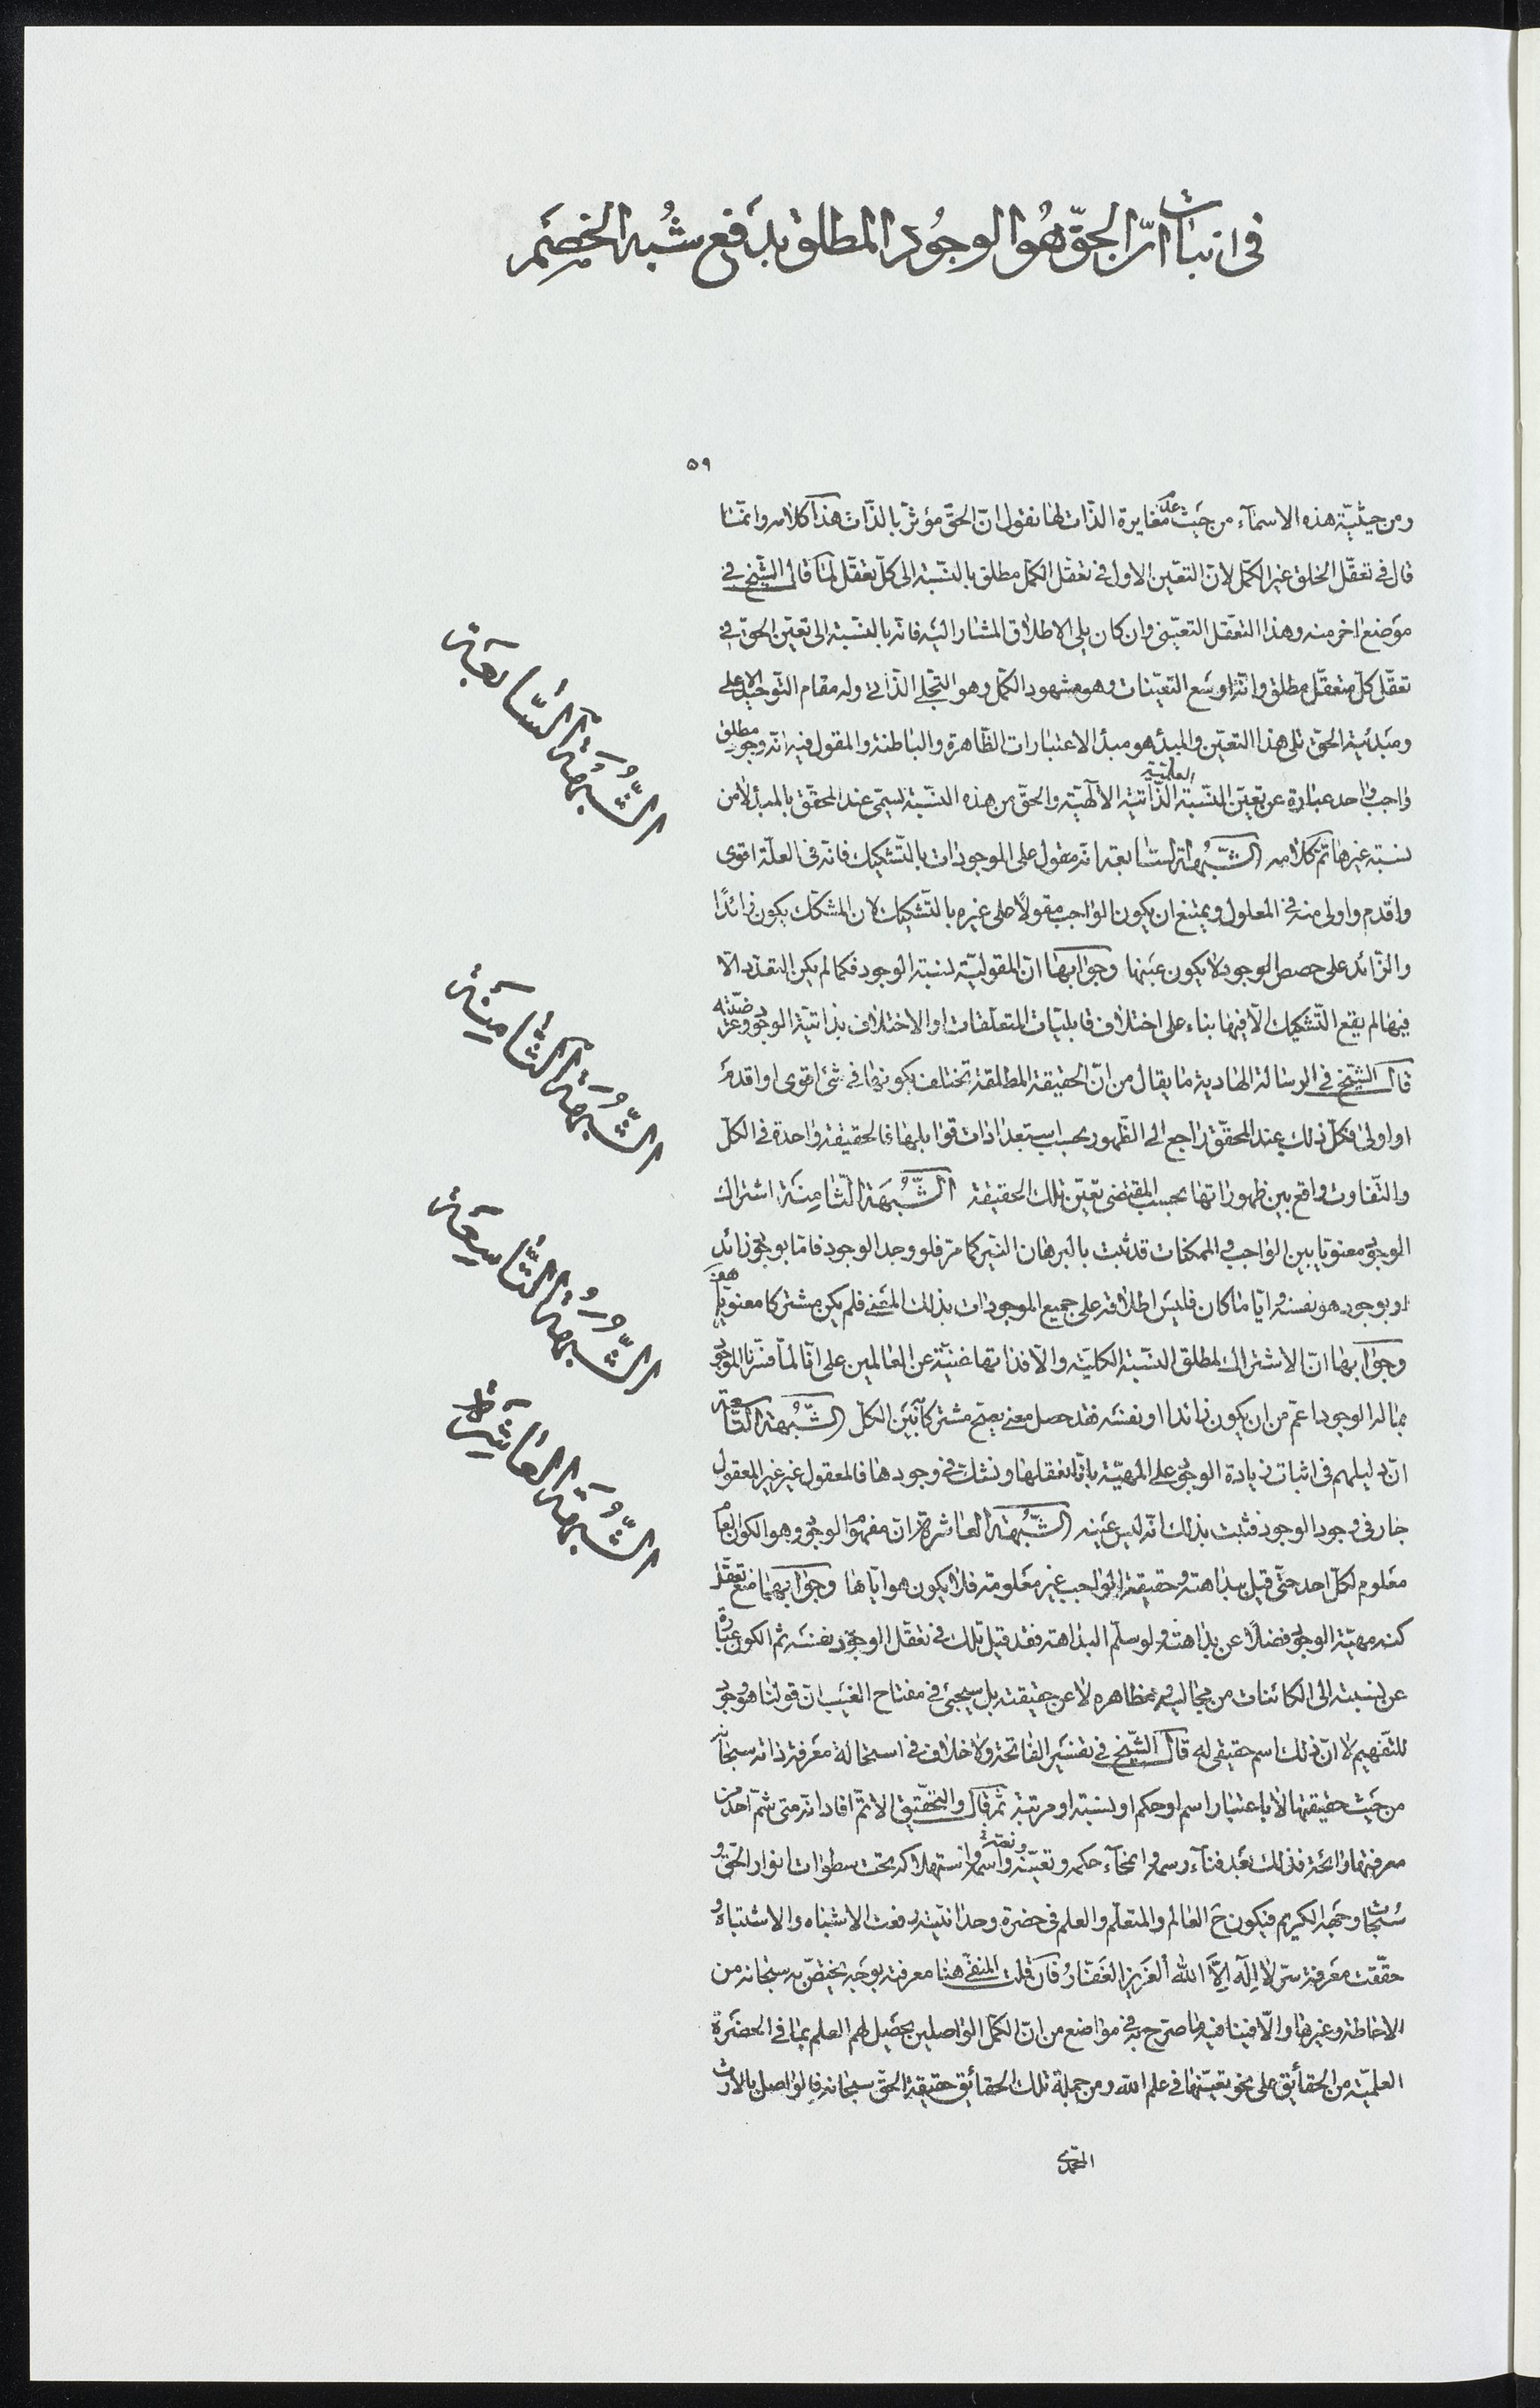 في اثبات انّ الحقّ هُو الوجُود المطلق بدَفع شُبه الخصَم
٥٩
ومن حيثيّة هذه الاسمآء من حَيث عدم مغايرة الذّات لها نقول انّ الحقّ مؤثّر بالذّات هذا كلامه وانّما
قال في تعقّل الخلق غير الكمّل لانّ التعيّن الاول في تعقّل الكمّل مطلق بالنّسبة الى كلّ تعقّل لما قال الشّيخ في
موَضع اخر منه وهذا التعقّل التعيّني وان كان يلي الاطلاق المشار اليَه فانّه بالنسّبة الى تعيّن الحقّ في
تعقّل كلّ متعقّل مطلق وانّه اوسَع التعيّنات وهو مشهود الكمّل وهو التجلّي الذّاتي وله مقام التّوحيد الاعلى
ومَبدئية الحقّ تلى هذا التعيّن والمبدء هو مبدأ الاعتبارات الظّاهرة والباطنة والمقول فيه انّه وجود مطلق
واجب واحد عبارة عن تعيّن النّسبة العلميّة الذّاتيّة الالٰهيّة والحقّ من هذه النّسبة يسمّى عند المحقّق بالمبدء لا من
نسبة غيرها تمّ كلامه الشّبُهة السّابعة انّه مقول على الموجودات بالتّشكيك فانّه في العلّة اقوى
واقدم واولى منه في المعلول ويمتنع ان يكون الواجب مقولًا على غيره بالتّشكيك لان المشكّك يكون زائدًا
والزّائد على حصص الوجود لا يكون عَينها وجوابها انّ المقوليّة لنسبة الوجود فكما لم يكن التعدّد الّا
فيها لم يقع التّشكيك الّا فيها بناء على اختلاف قابليّات المتعلّقات او الاختلاف بذاتيّة الوجود وعرضيّته
قال الشّيخ في الرسالة الهادية ما يقال من انّ الحقيقة المطلقة تختلف بكونها في شئ اقوى او اقدمَ
او اولى فكلّ ذلك عند المحقّق راجع الى الظّهور بحسب استعدادات قوابلها فالحقيقة واحدة في الكلّ
والتّفاوت واقع بين ظهوراتها بحسب المقتضى تعيّن تلك الحقيقة الشّبُهَة الثّامِنَة اشتراك
الوجود معنويّا بين الواجب والممكنات قد ثبت بالبرهان النيّر كما مرّ فلو وجد الوجود فامّا بوجود زائد
او بوجود هو نفسه وايّا ما كان فليسَ اطلاقه على جميع الموجودات بذلك المَعنى فلم يكن مشتركا معنويّا هف
وجوابها انّ الاشتراك لمطلق النّسبة الكليّة والّا فذاتها غنيّة عن العالمين على انّا لمّا فسّرنا الموجود
بما له الوجود اعمّ من ان يكون زائدا او نفسَه فقد حصل معنى يصح مشتركا بَين الكلّ الشّبُهة التّاسعة
انّ دليلهم في اثبات زيادة الوجود على المهيّة بانّا نعقلها ونشكّ في وجودها فالمعقول غير غير المعقول
جار في وجود الوجود فثبت بذلك انّه ليس عَينه الشّبُهة العاشرة انّ مفهوم الوجود وهو الكون العام
معَلوم لكلّ احد حتّى قيل ببداهته وحقيقة الواجب غير معَلومة فلا يكون هو ايّاها وجوابها منع تعقّل
كنه مهيّة الوجود فضلًا عن بداهته ولو سلّم البداهة فقد قيل تلك في تعقّل الوجود بنفسَه ثم الكون عبارة
عن نسبته الى الكائنات من مجاليه ومظاهره لا عن حقيقته بل سيجئ في مفتاح الغيَب انّ قولنا هو وجود
للتّفهيم لا انّ ذلك اسم حقيقى له قال الشّيخ في تفسَير الفاتحة ولا خلاف في استحالة معَرفة ذاته سبحانه
من حَيث حقيقتها لا باعتبار اسم او حكم او نسبة او مرتبة ثمّ قال والتّحقيق الاتمّ افاد انّه متى شمّ احد من
معرفتها رائحة فذلك بَعد فنآء رسمه وانمحآء حكمه وتعيّنه ونعته واسمه واستهلاكه تحت سطوات انوار الحقّ و
سُبحات وجهه الكريم فيكون ح العالم والمتعلّم والعلم في حضرة وحدانيّة رفعت الاشباه والاشتباه و
حقّقت معَرفة سرّ لا اِلٰه اِلّا الله اَلعَزيز الغَفّارُ فان قلت المنفيّ هنا معرفته بوَجه يختصّ به سبحانه من
الاحاطة وغيرها والّا فينافيه ما صرّح به في مواضع من انّ الكمّل الواصلين يحصَل لهم العلم بما في الحضَرة
العلميّة من الحقائق على نحو تعيّنها في علم الله ومن جملة تلك الحقائق حقيقة الحقّ سبحانه فالواصل بالارث
المحمّدي
الشُّبهَة السَّابعَة
الشُّبهَة الثّامِنَة
الشُّبهَة التّاسِعَة
الشُّبهَة العَاشِرَة